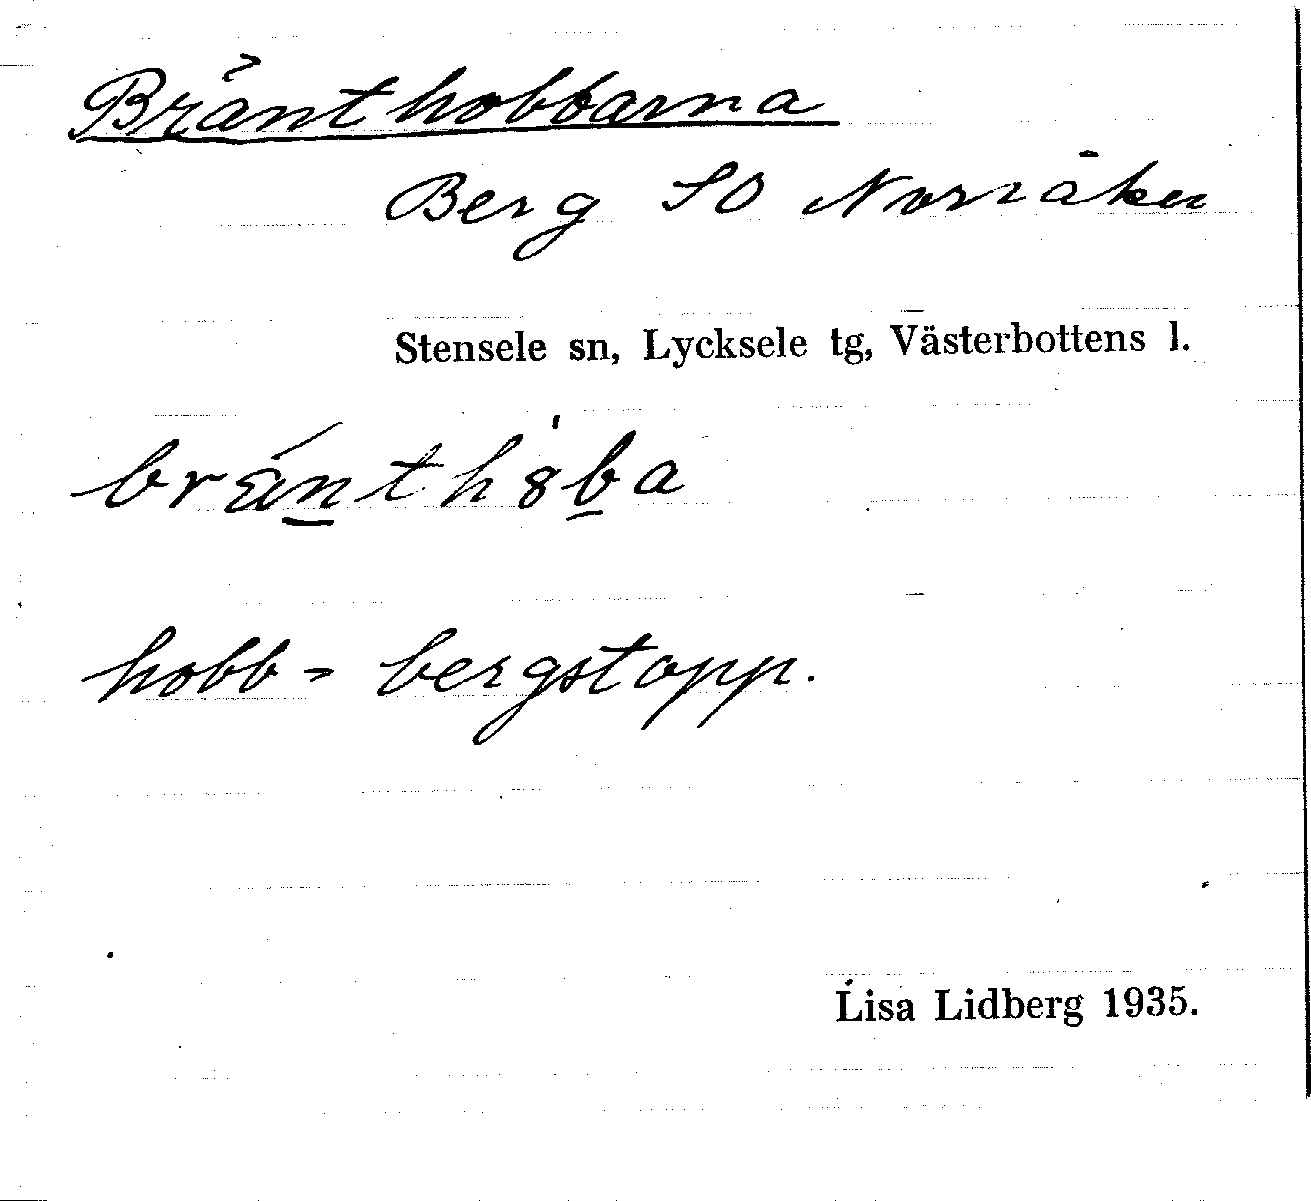 Bränthobbarna
Berg SO Norråker
Stensele sn, Lycksele tg, Västerbottens l.
brǽn̲th8b̲a
hobb = bergstopp.
Lisa Lidberg 1935.